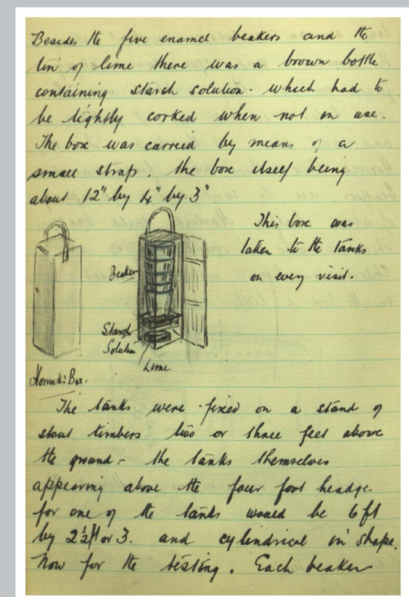 Besides the five enamel beakers and the
tin of lime there was a brown bottle
containing starch solution - which had to
be tightly corked when not in use.
The box was carried by means of a
small strap. the box itself being
about 12" by 4" by 3"
This box was
taken to the tanks
on every visit.
Beakers
Starch
Solution
Lime
Horrocks Box.
The tanks were fixed on a stand of
stout timbers two or three feet above
the ground - the tanks themselves
appearing above the four foot headge.
for one of the tanks would be 6 ft
by 2½ ft or 3. and cylindrical in shape.
Now for the testing. Each beaker